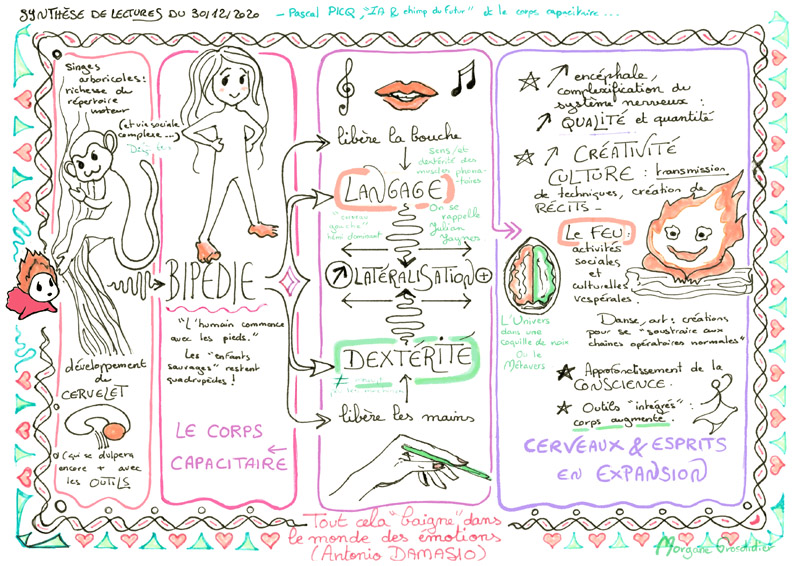 SYNTHÈSE DE LECTURES DU 30/12/2020
- Pascal PICQ, "IA & chimp du Futur" et le corps capacitaire ...
Singes
arboricoles :
richesse du
répertoire
moteur
(et vie sociale
complexe ...)
développement
du
CERVELET
(qui se dvlpera
encore + avec
les OUTILS
BIPÉDIE
"L'humain commence
avec les pieds."
Les "enfants
sauvages" restent
quadrupèdes !
LE CORPS
CAPACITAIRE
libère la bouche
Sens et
dextérité des
muscles phona-
-toires
LANGAGE
"cerveau
gauche"
On se
rappelle
Julian
Jaynes
LATÉRALISATION +
DEXTÉRITÉ
≠
libère les mains
encéphale,
complexification du
système nerveux :
QUALITÉ et quantité
CRÉATIVITÉ
CULTURE : transmission
de techniques, création de
RÉCITS -
Le FEU :
activités
sociales
et
culturelles
vespérales.
L'Univers
dans une
coquille de noix
Ou le
Métavers
Danse, art : créations
pour se "soustraire aux
chaînes opératoires normales"
Approfondissement de la
CONSCIENCE.
Outils "intégrés" :
corps augmenté.
CERVEAUX & ESPRITS
EN EXPANSION
Tout cela "baigne" dans
le monde des émotions
(Antonio DAMASIO)
Morgane Grosdidier